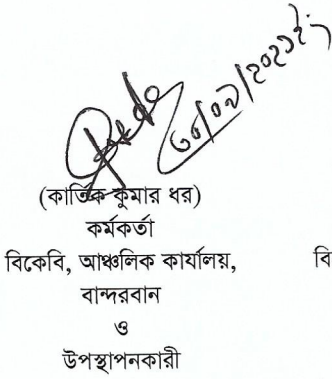 ৩০/০৯/২০২১ইং
(কার্তিক কুমার ধর)
কর্মকর্তা
বিকেবি, আঞ্চলিক কার্যালয়, বি
বান্দরবান
ও
উপস্থাপনকারী